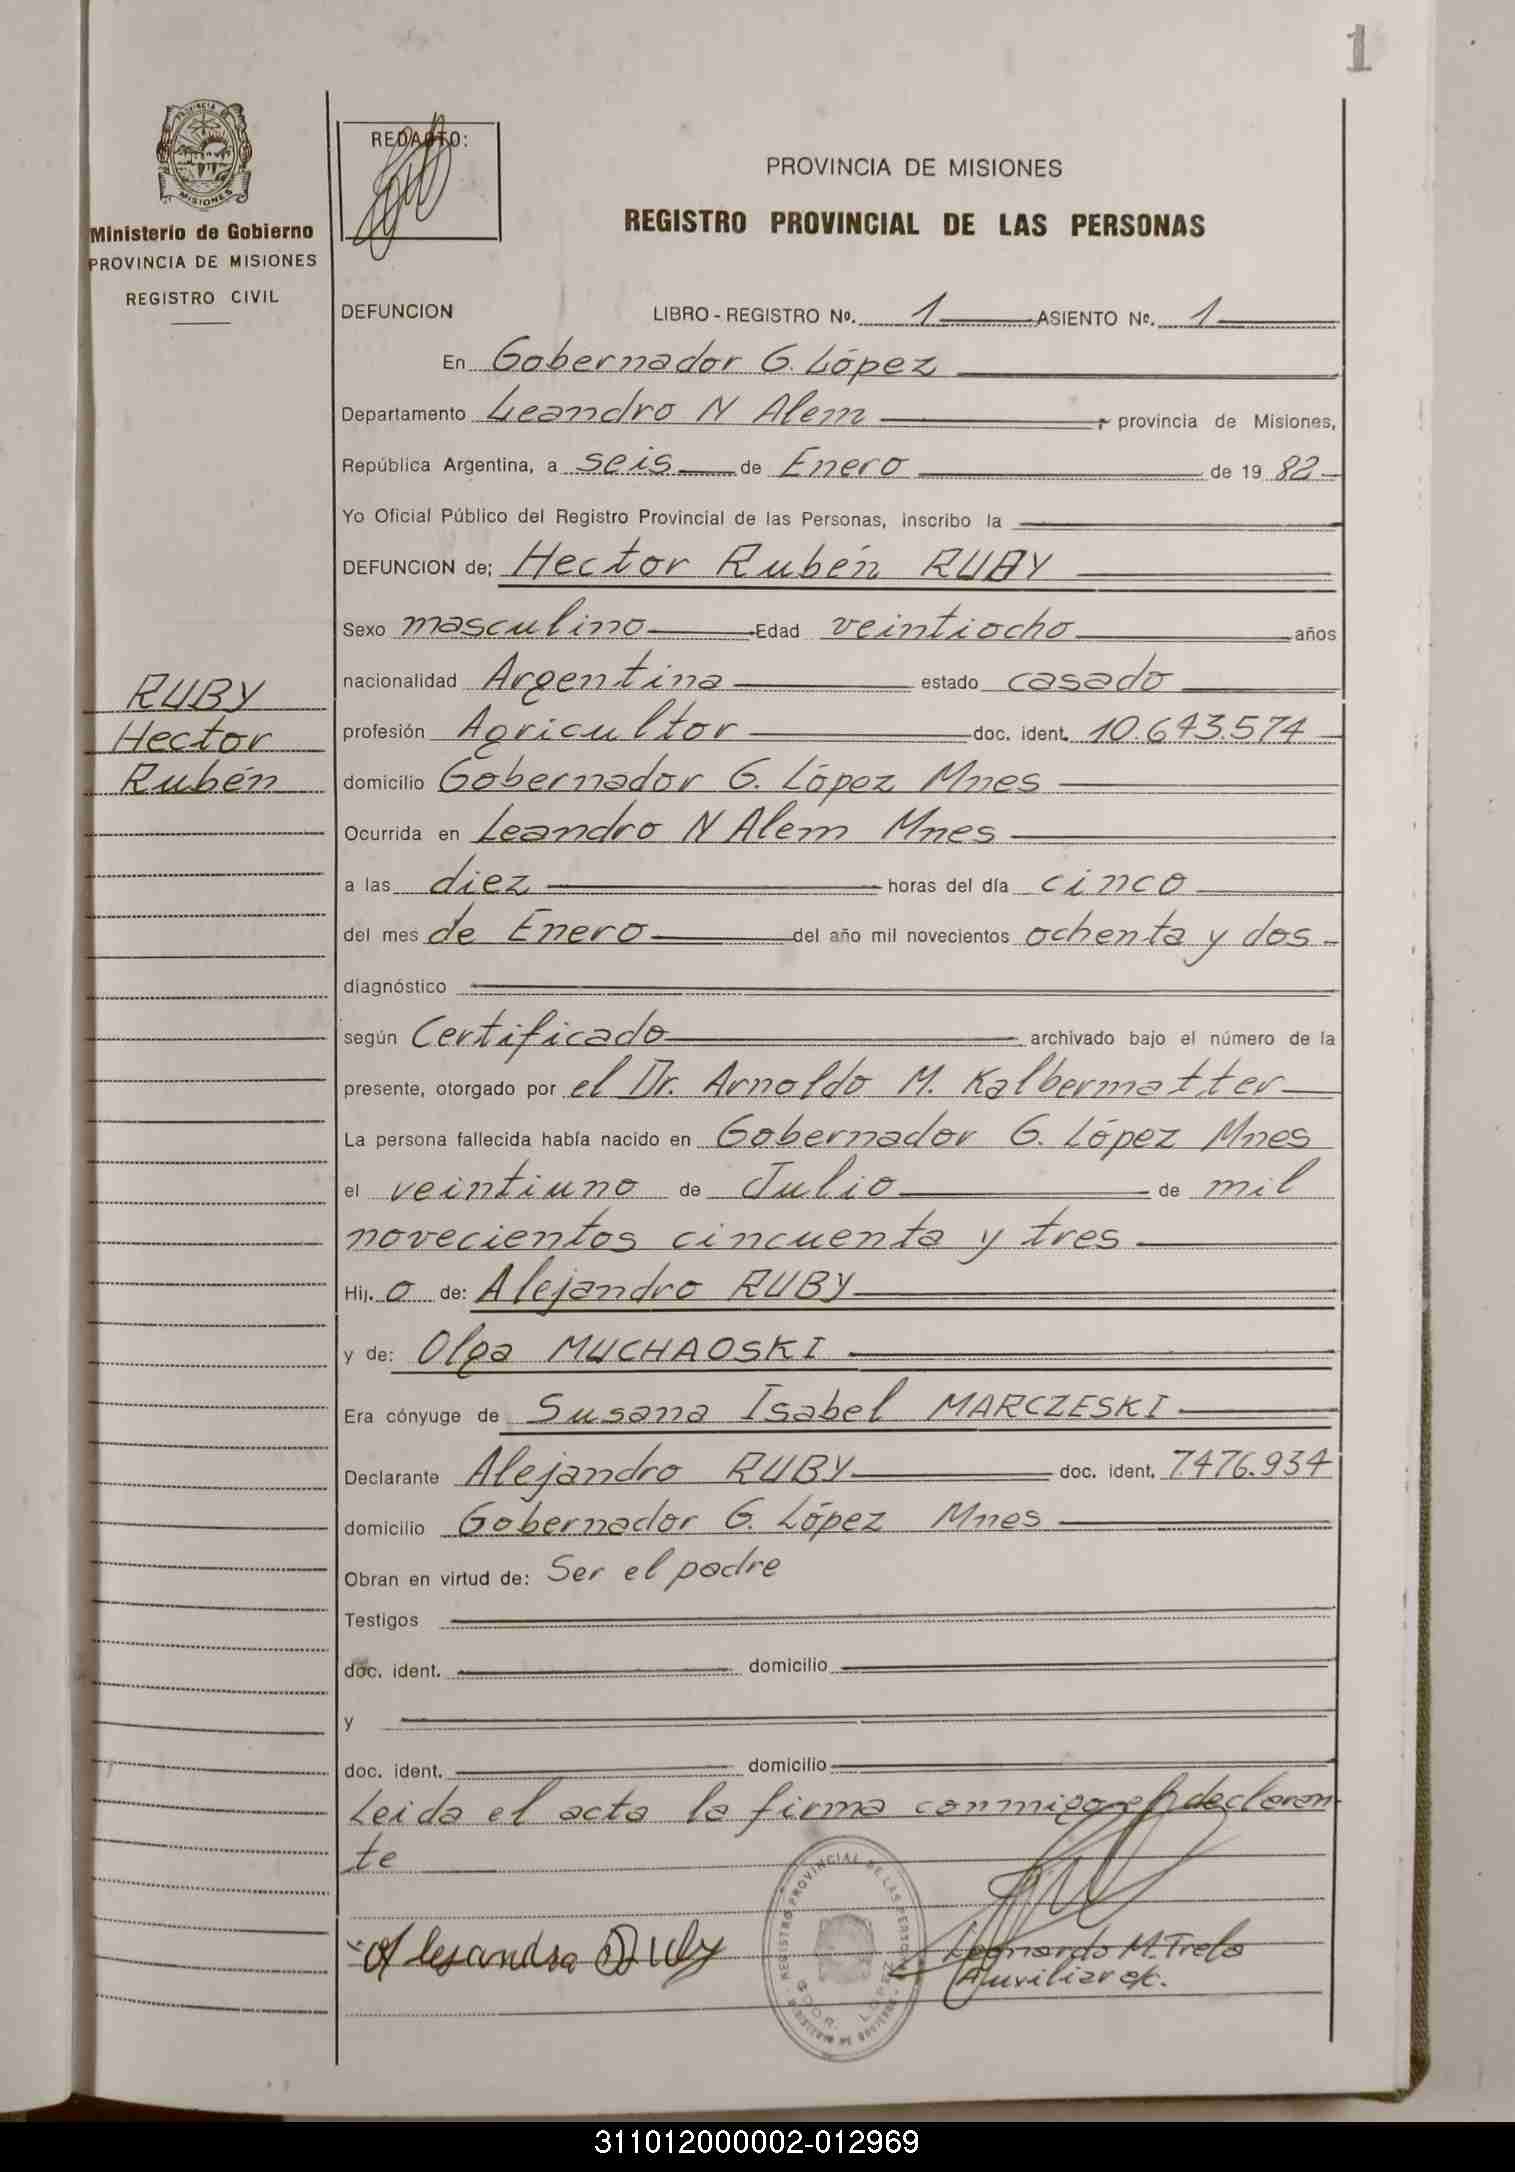 1
PROVINCIA DE
MISIONES
Ministerio de Gobierno
PROVINCIA DE MISIONES
REGISTRO CIVIL
REDACTO:
PROVINCIA DE MISIONES
REGISTRO PROVINCIAL DE LAS PERSONAS
DEFUNCION LIBRO - REGISTRO Nº. 1 ASIENTO Nº. 1
En Gobernador G. López
Departamento Leandro N Alem, provincia de Misiones,
República Argentina, a seis de Enero de 19 82
Yo Oficial Público del Registro Provincial de las Personas, inscribo la
DEFUNCION de; Hector Rubén RUBY
Sexo masculino Edad veintiocho años
nacionalidad Argentina estado casado
RUBY
Hector
Rubén
profesión Agricultor doc. ident. 10.643.574
domicilio Gobernador G. López Mnes
Ocurrida en Leandro N Alem Mnes
a las diez horas del día cinco
del mes de Enero del año mil novecientos ochenta y dos
diagnóstico
según Certificado archivado bajo el número de la
presente, otorgado por el Dr. Arnoldo M. Kalbermatter
La persona fallecida había nacido en Gobernador G. López Mnes
el veintiuno de Julio de mil
novecientos cincuenta y tres
Hij. o de: Alejandro RUBY
y de: Olga MUCHAOSKI
Era cónyuge de Susana Isabel MARCZESKI
Declarante Alejandro RUBY doc. ident. 7.476.934
domicilio Gobernador G. López Mnes
Obran en virtud de: Ser el padre
Testigos
doc. ident. domicilio
y
doc. ident. domicilio
Leida el acta la firma conmigo el declaran-
te
Alejandro Ruby
REGISTRO PROVINCIAL DE LAS PERSONAS
GDOR. LOPEZ
Leonardo M. Trela
Auxiliar e/c.
311012000002-012969